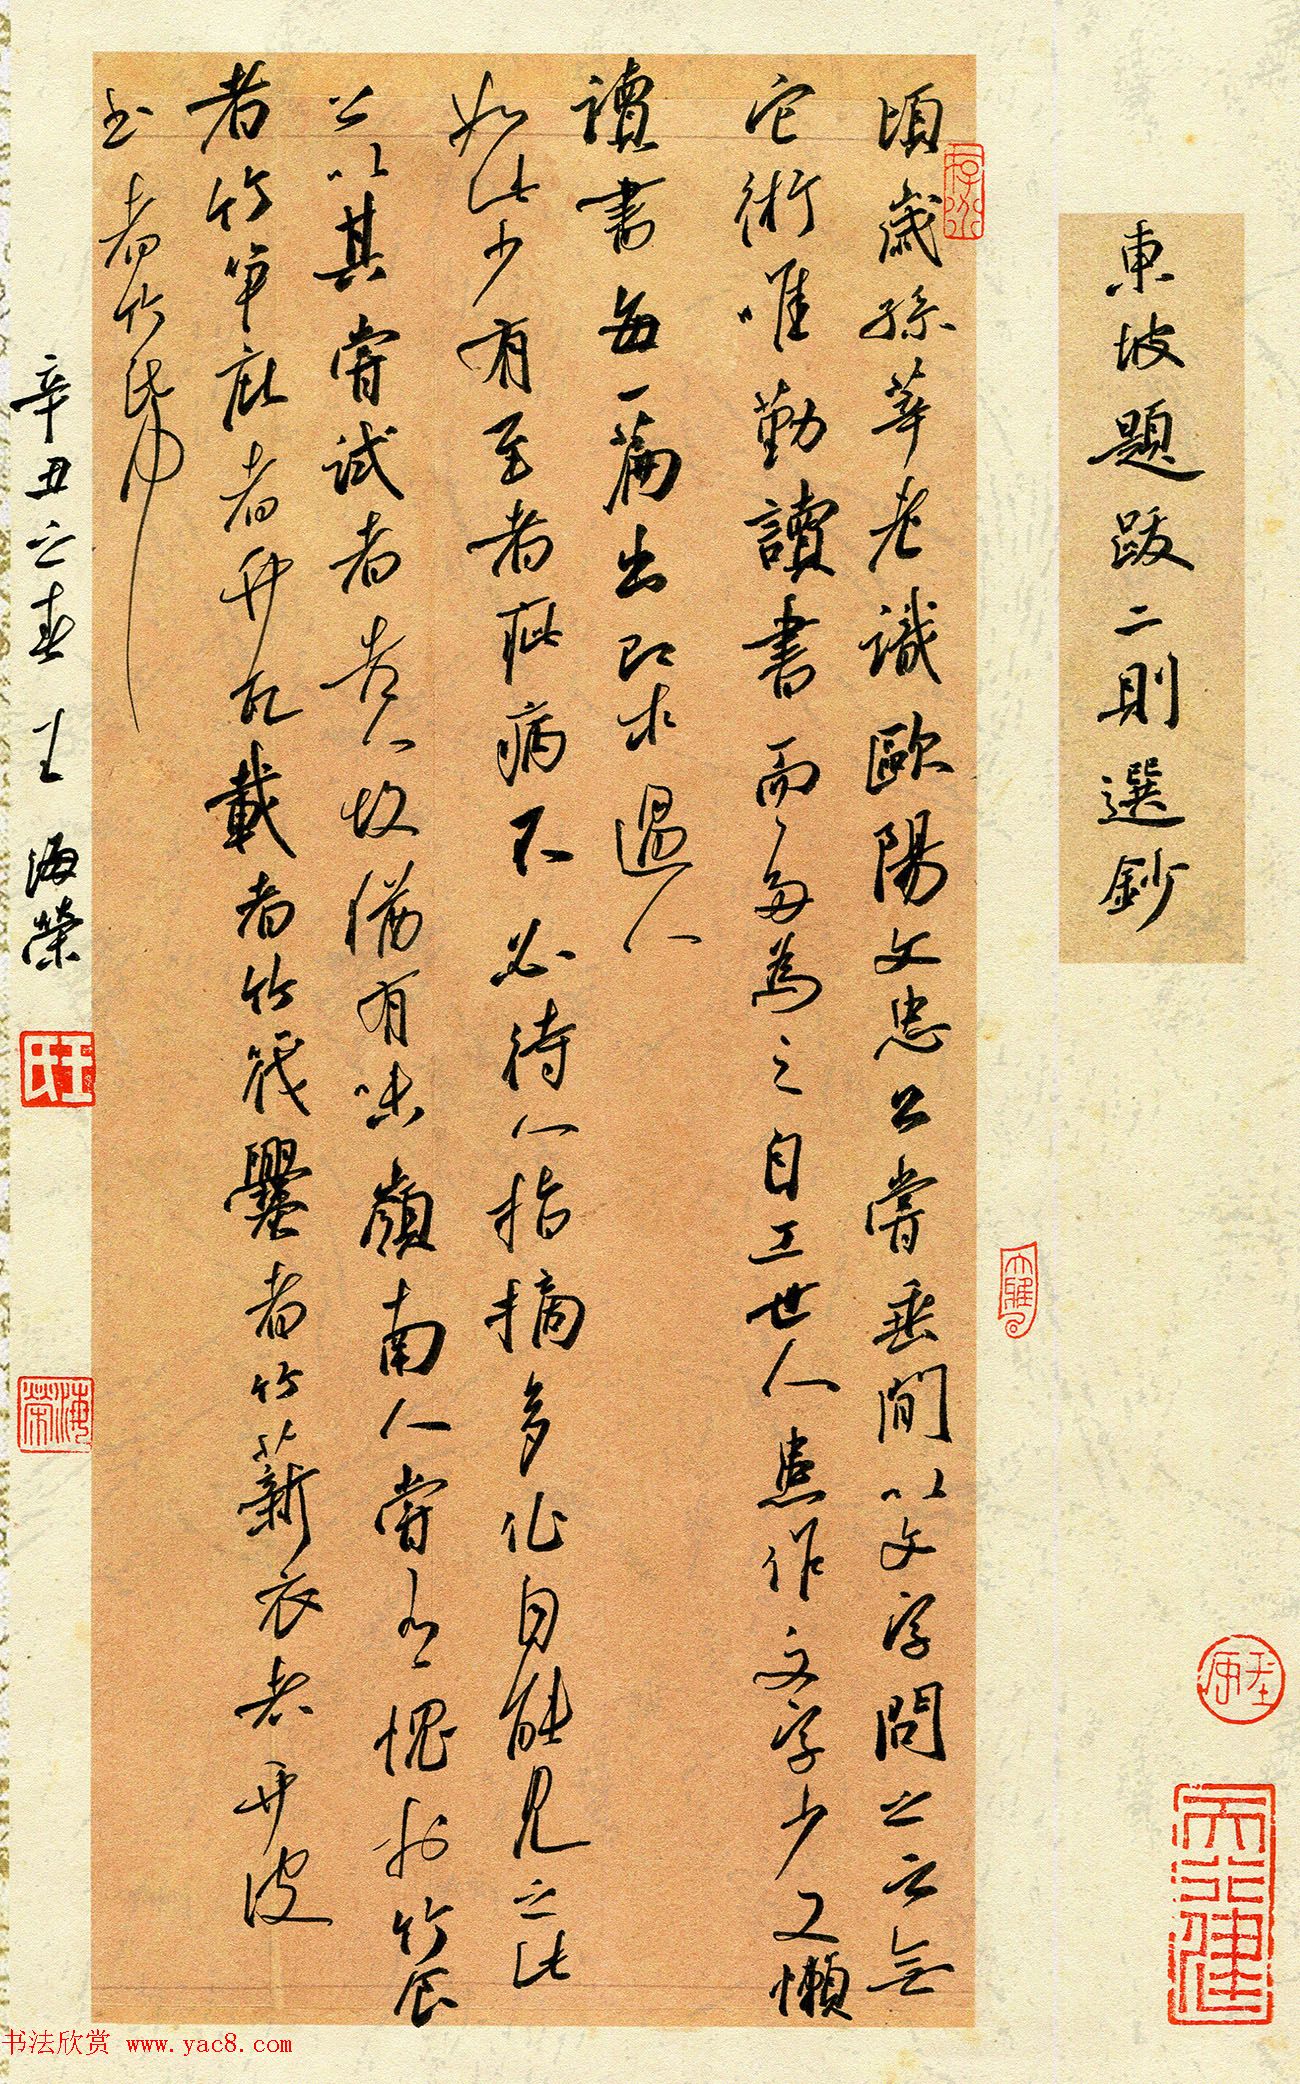 東坡題跋二則選鈔
頃歲孫莘老識歐陽文忠公嘗乘間以文字問之云無
它術唯勤讀書而多為之自工世人患作文字少又懶
讀書每一篇出即求過人
如此少有至者疵病不必待人指摘多作自能見之此
公以其嘗試者告人故猶有味嶺南人嘗有愧於竹食
者竹筍庇者竹瓦載者竹筏爨者竹薪衣者竹皮
書者竹紙
辛丑之春 王海榮
王氏
海榮
天行健
书法欣赏 www.yac8.com